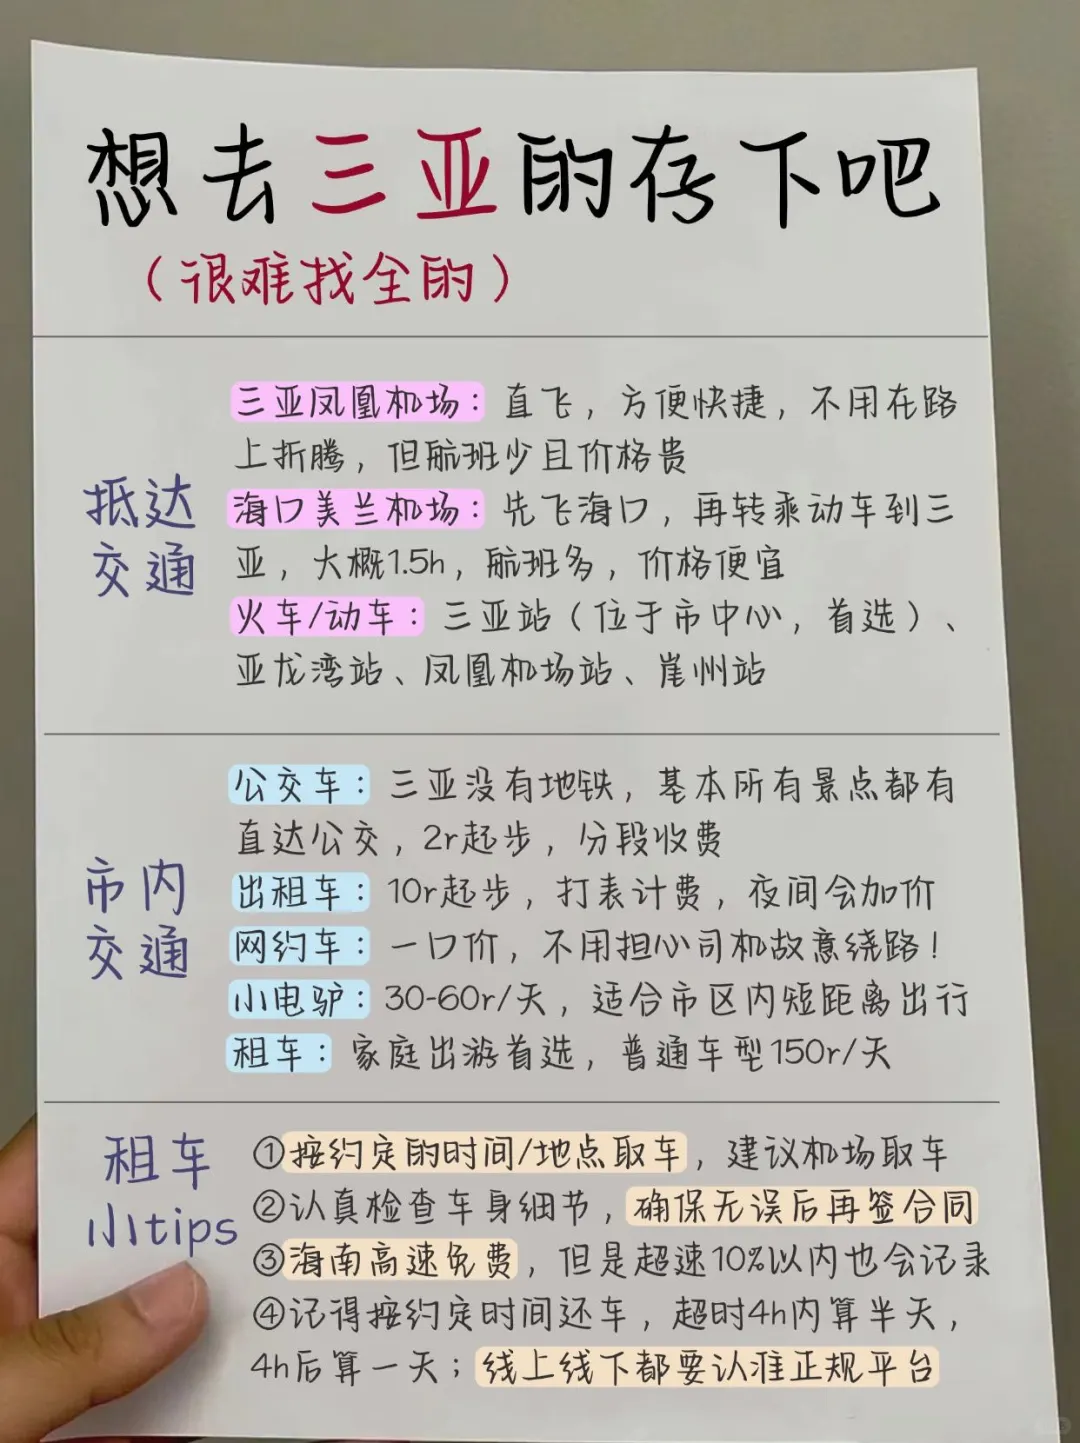 想去三亚的存下吧
（很难找全的）
抵达
交通
三亚凤凰机场：直飞，方便快捷，不用在路
上折腾，但航班少且价格贵
海口美兰机场：先飞海口，再转乘动车到三
亚，大概1.5h，航班多，价格便宜
火车/动车：三亚站（位于市中心，首选）、
亚龙湾站、凤凰机场站、崖州站
市内
交通
公交车：三亚没有地铁，基本所有景点都有
直达公交，2r起步，分段收费
出租车：10r起步，打表计费，夜间会加价
网约车：一口价，不用担心司机故意绕路！
小电驴：30-60r/天，适合市区内短距离出行
租车：家庭出游首选，普通车型150r/天
租车
小tips
①按约定的时间/地点取车，建议机场取车
②认真检查车身细节，确保无误后再签合同
③海南高速免费，但是超速10%以内也会记录
④记得按约定时间还车，超时4h内算半天，
4h后算一天；线上线下都要认准正规平台